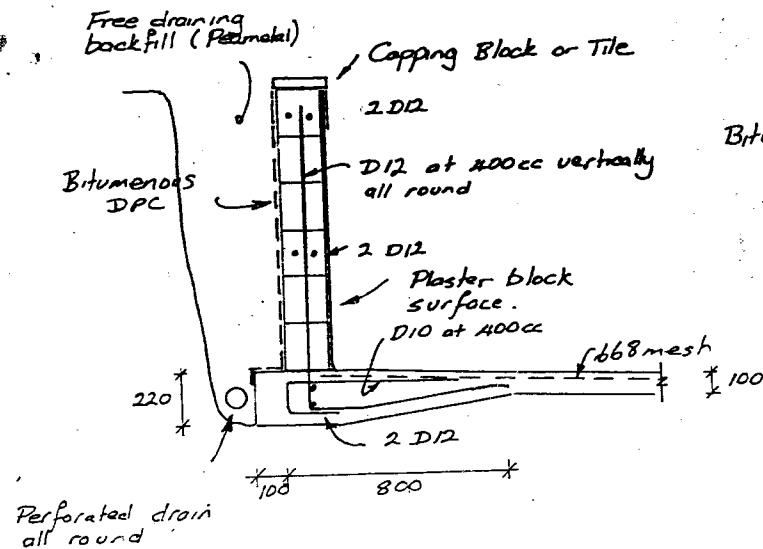 Free draining
backfill (Permetal)
Copping Block or Tile
2 D12
Bitu
D12 at 400cc vertically
all round
Bitumenous
DPC
2 D12
Plaster block
surface.
D10 at 400cc
668 mesh
220
100
2 D12
100
800
Perforated drain
all round